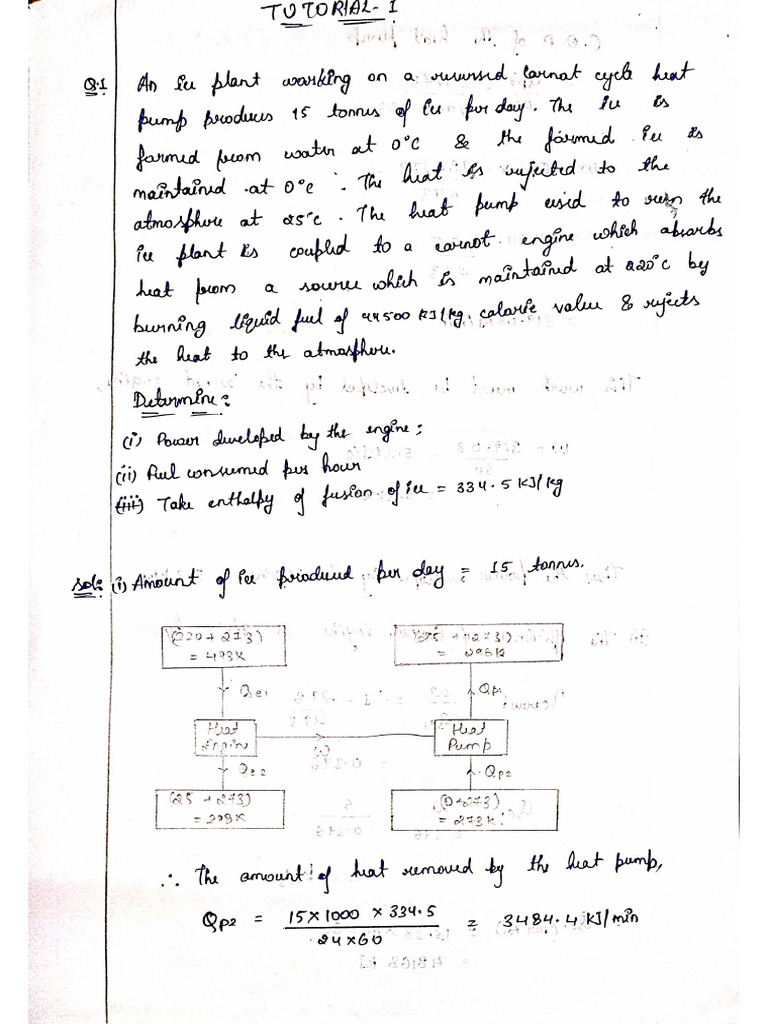 TUTORIAL-1
Q.1 An ice plant working on a reversed carnot cycle heat
pump produces 15 tonnes of ice per day. The ice is
formed from water at 0°C & the formed ice is
maintained at 0°C. The heat is rejected to the
atmosphere at 25°C. The heat pump used to run the
ice plant is coupled to a carnot engine which absorbs
heat from a source which is maintained at 220°C by
burning liquid fuel of 44500 KJ/kg. calorie value & rejects
the heat to the atmosphere.
Determine:
(i) Power developed by the engine;
(ii) Fuel consumed per hour
(iii) Take enthalpy of fusion of ice = 334.5 KJ/kg
Sol: (i) Amount of ice produced per day = 15 tonnes.
(220+273) = 493K
(25 + 273) = 298K
Qe1
Qp1
Heat Engine
W
Heat Pump
Qe2
Qp2
(25 + 273) = 298K
(0+273) = 273K
∴ The amount of heat removed by the heat pump,
Qp2 = 15×1000 × 334.5 / 24×60 = 3484.4 KJ/min